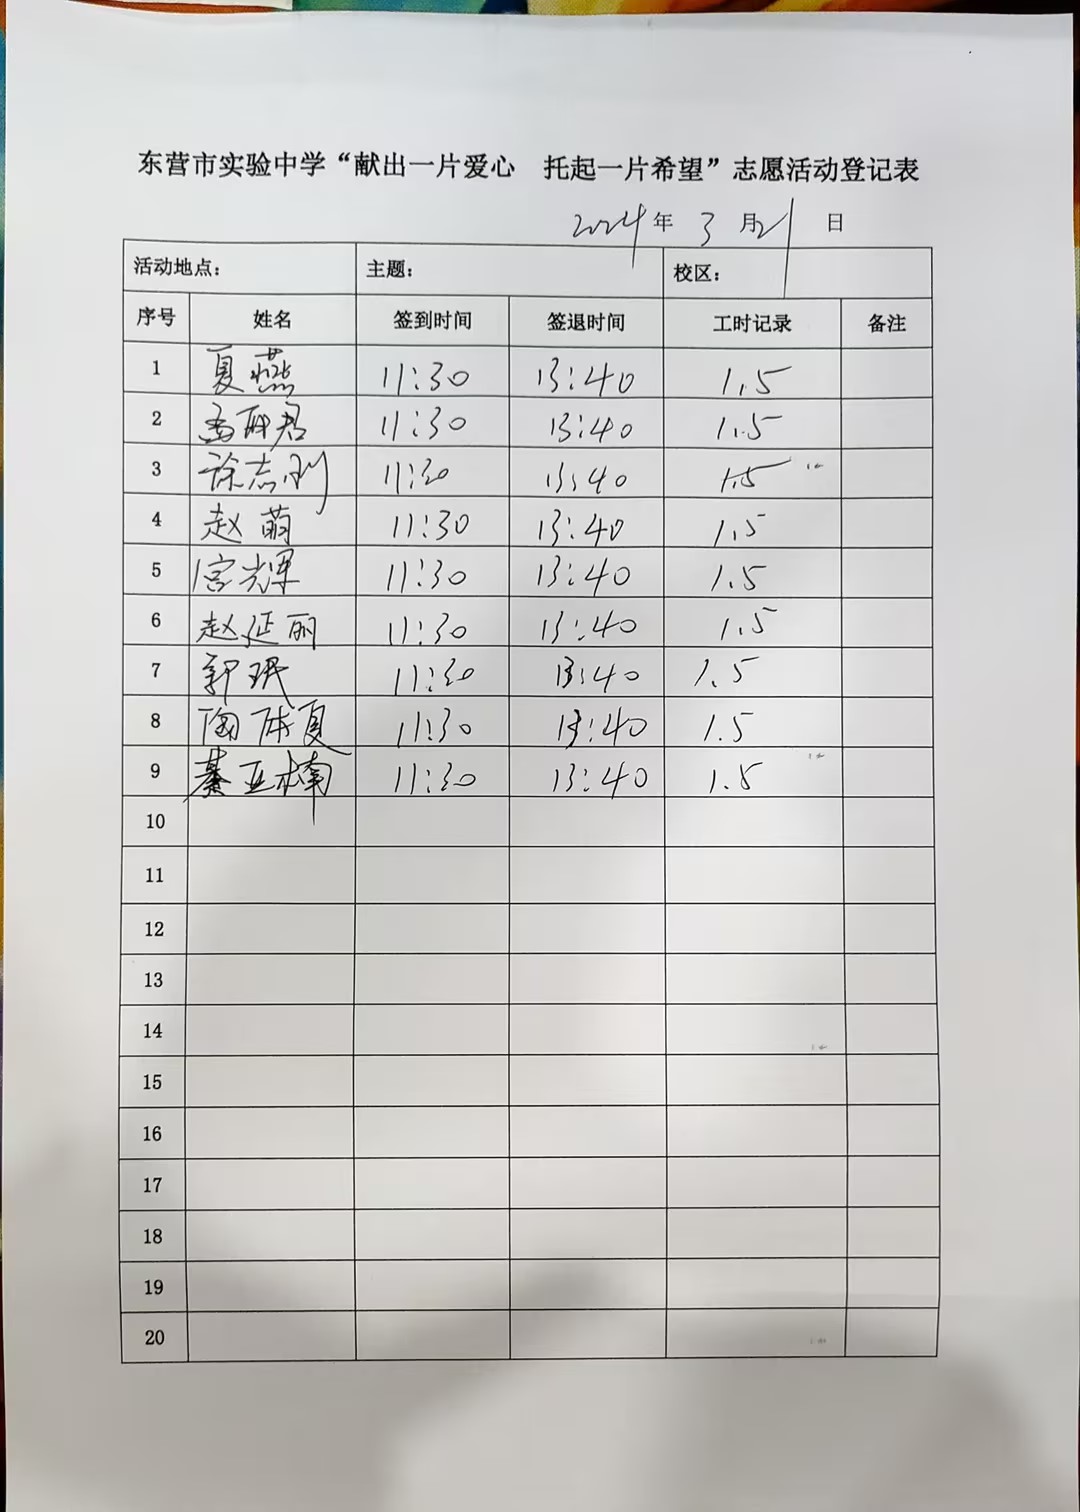 东营市实验中学“献出一片爱心 托起一片希望”志愿活动登记表
2024年 3 月21日
活动地点: 主题: 校区:
序号 姓名 签到时间 签退时间 工时记录 备注
1 夏燕 11:30 13:40 1.5
2 孟君 11:30 13:40 1.5
3 徐志刚 11:30 13:40 1.5
4 赵萌 11:30 13:40 1.5
5 宫光辉 11:30 13:40 1.5
6 赵延丽 11:30 13:40 1.5
7 郭珉 11:30 13:40 1.5
8 陶夏 11:30 13:40 1.5
9 綦亚楠 11:30 13:40 1.5
10
11
12
13
14
15
16
17
18
19
20